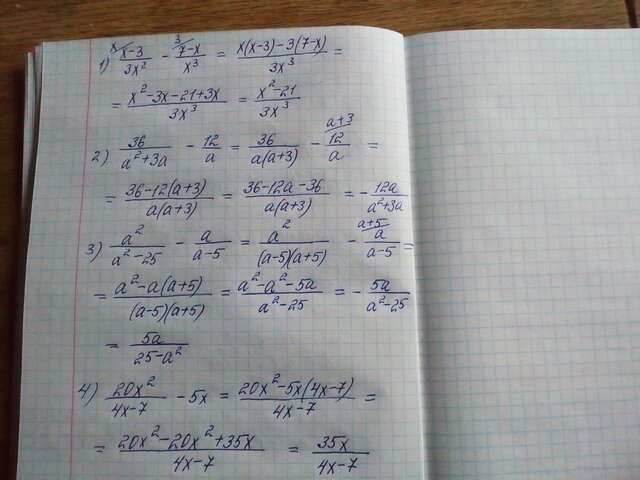 1) ˣ/(x-3)/(3x²) - ³/(7-x)/(x³) = (x(x-3)-3(7-x))/(3x³) =
= (x²-3x-21+3x)/(3x³) = (x²-21)/(3x³)
2) 36/(a²+3a) - 12/a = 36/(a(a+3)) - ᵃ⁺³/12/a =
= (36-12(a+3))/(a(a+3)) = (36-12a-36)/(a(a+3)) = - 12a/(a²+3a)
3) a²/(a²-25) - a/(a-5) = a²/((a-5)(a+5)) - ᵃ⁺⁵/a/(a-5) =
= (a²-a(a+5))/((a-5)(a+5)) = (a²-a²-5a)/(a²-25) = - 5a/(a²-25)
= 5a/(25-a²)
4) 20x²/(4x-7) - 5x = (20x²-5x(4x-7))/(4x-7) =
= (20x²-20x²+35x)/(4x-7) = 35x/(4x-7)